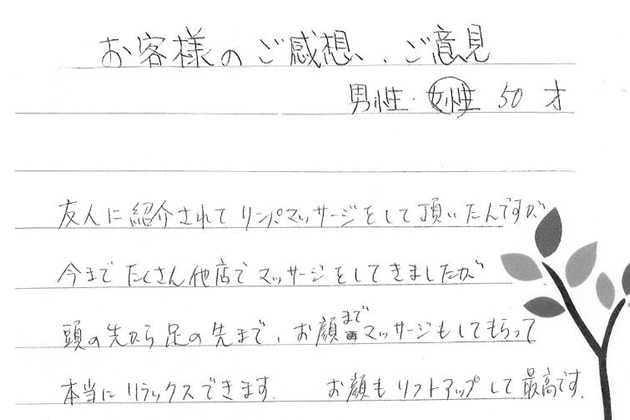 お客様のご感想、ご意見
男性・女性 50 才
友人に紹介されてリンパマッサージをして頂いたんですが
今までたくさん他店でマッサージをしてきましたが
頭の先から足の先まで、お顔までマッサージもしてもらって
本当にリラックスできます. お顔もリフトアップして最高です.